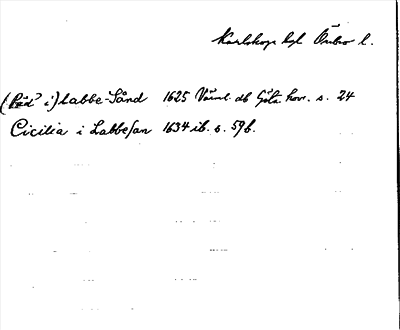 Karlskoga bgl Örebro l.
(Påd? i) Labbe-Sånd 1625 Värml. db Göta hovr. s. 24
Cicilia i Labbesan 1634 ib. s. 59 b.